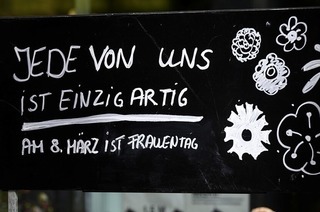 JEDE VON UNS
iST EiNZiGARTiG
AM 8. MÄRZ iST FRAUENTAG